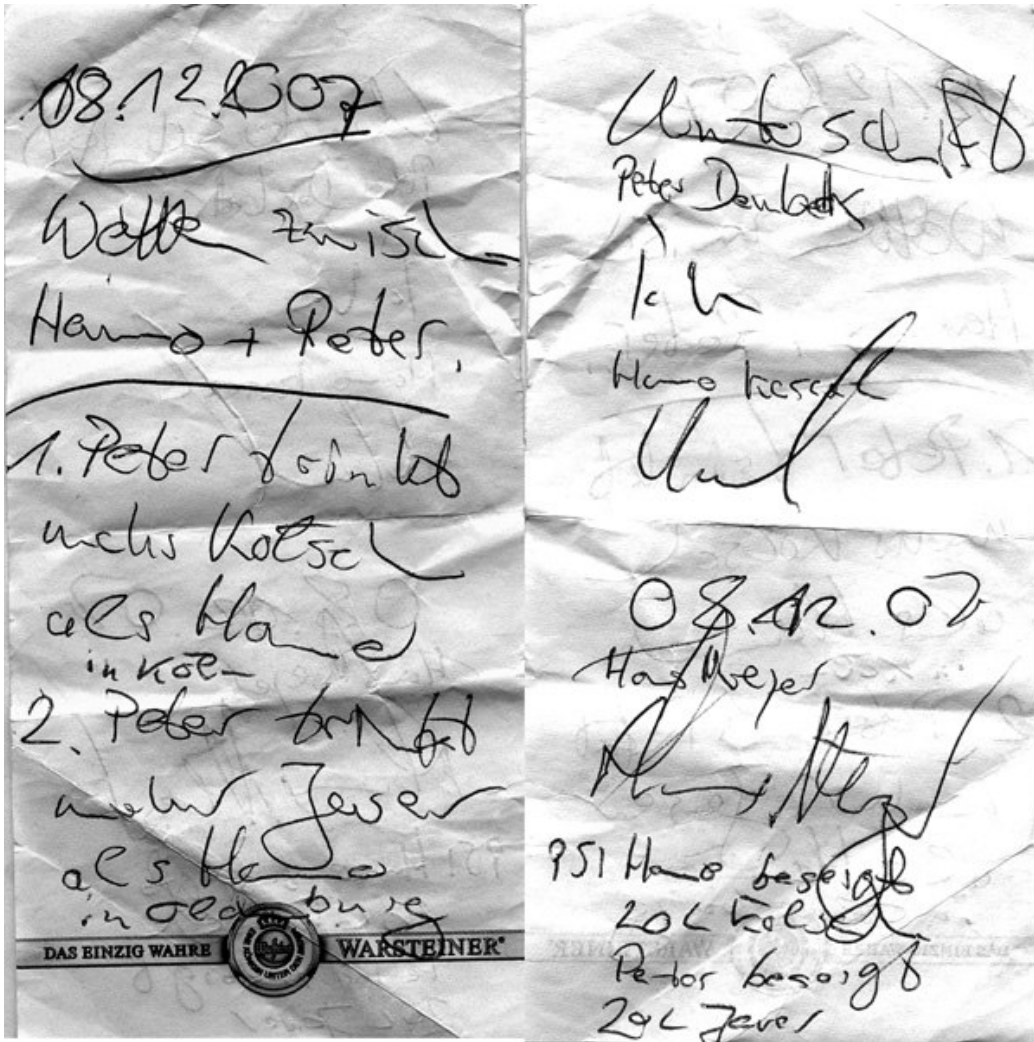 08.12.2007
Wette zwisch
Hanno + Peter.
1. Peter trinkt
mehr Kölsch
als Hanno
in Köln
2. Peter trinkt
mehr Jever
als Hanno
in Oldenburg
DAS EINZIG WAHRE WARSTEINER
Unterschrift
Peter
Hanno
08.12.07
Hans Meyer
PS1 Hanno besorgt
20L Kölsch
Peter besorgt
20L Jever